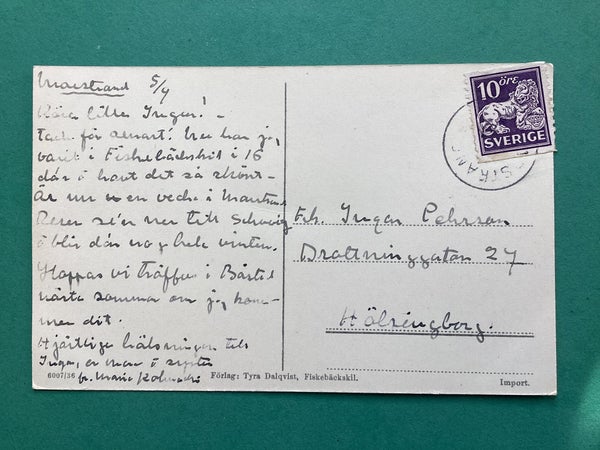 Marstrand 5/9
Kära lilla Ingar! –
Tack för senast! Nu har jag
varit i Fiskebäckskil i 16
dar å haft det så skönt –
Är nu en vecka i Marstrand
Reser se'n ner till Schweiz
å blir där nog hela vintern.
Hoppas vi träffas i Båstad
nästa sommar om jag kom-
mer dit.
Hjärtliga hälsningar till
Inga, er mor å syster
fr. Maria
10 ÖRE
SVERIGE
STRAND
Frk. Ingar Pehrson
Drottninggatan 27
Hälsingborg.
6007/36 Förlag: Tyra Dalqvist, Fiskebäckskil.
Import.